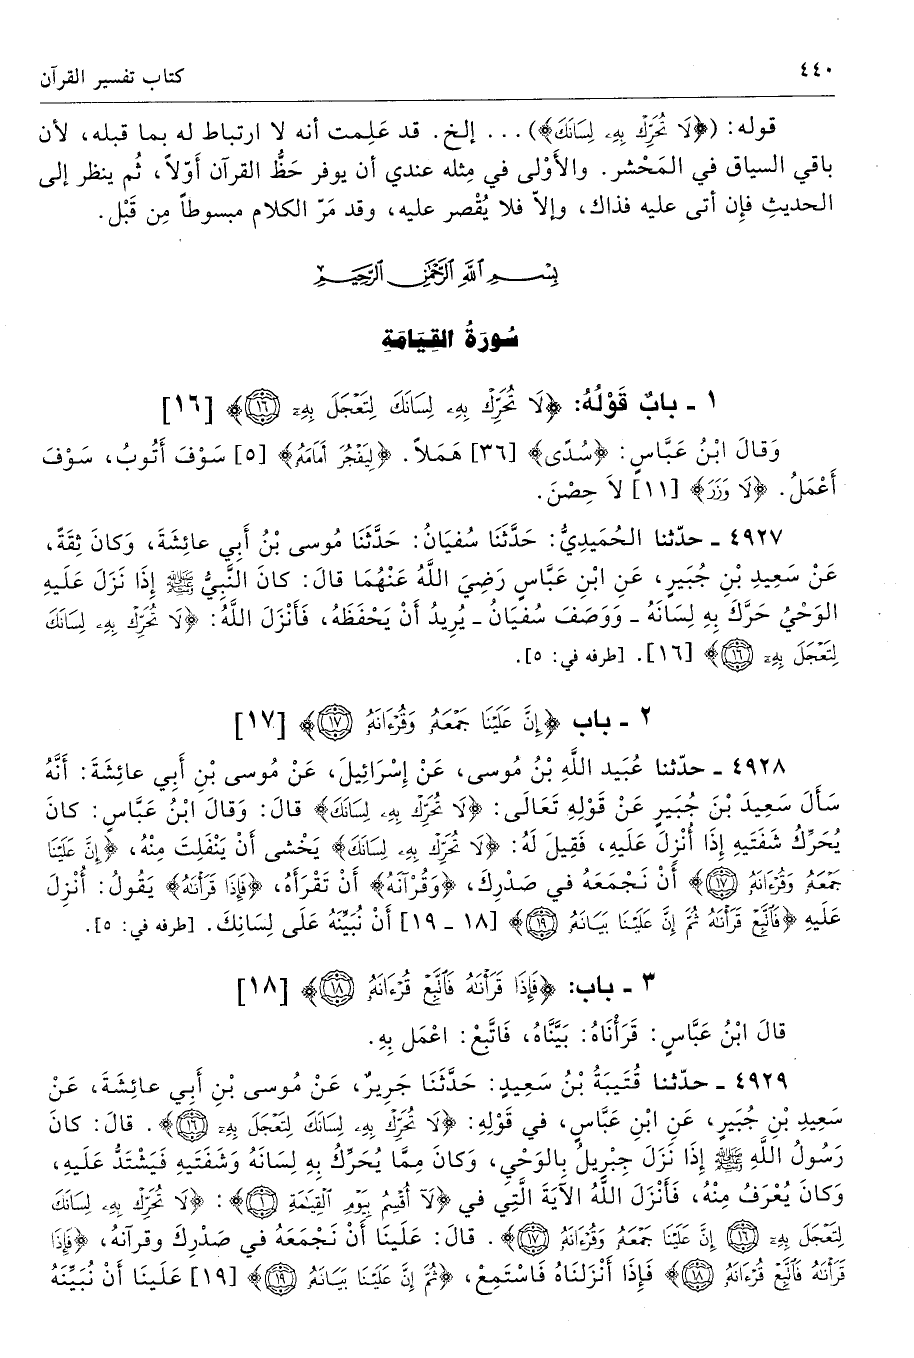 ٤٤٠
كتاب تفسير القرآن
قوله: (﴿لَا تُحَرِّكْ بِهِۦ لِسَانَكَ﴾) ... إلخ. قد عَلِمت أنه لا ارتباط له بما قبله، لأن
باقي السياق في المَحْشر. والأَوْلى في مِثله عندي أن يوفر حَظُّ القرآن أَوّلاً، ثُم ينظر إلى
الحديثِ فإِن أتى عليه فذاك، وإلاّ فلا يُقْصر عليه، وقد مَرّ الكلام مبسوطاً مِن قَبْل.
بِسْمِ اللَّهِ الرَّحْمَٰنِ الرَّحِيمِ
سُورَةُ القِيَامَةِ
١ ـ بابٌ قَوْلُهُ: ﴿لَا تُحَرِّكْ بِهِۦ لِسَانَكَ لِتَعْجَلَ بِهِۦٓ ١٦﴾ [١٦]
وَقالَ ابْنُ عَبَّاسٍ: ﴿سُدًى﴾ [٣٦] هَمَلاً. ﴿لِيَفْجُرَ أَمَامَهُ﴾ [٥] سَوْفَ أَتُوبُ، سَوْفَ
أَعْمَلُ. ﴿لَا وَزَرَ﴾ [١١] لاَ حِصْنَ.
٤٩٢٧ ـ حدّثنا الحُمَيدِيُّ: حَدَّثَنَا سُفيَانُ: حَدَّثَنَا مُوسى بْنُ أَبي عائِشَةَ، وَكانَ ثِقَةً،
عَنْ سَعِيدِ بْنِ جُبَيرٍ، عَنِ ابْنِ عَبَّاسٍ رَضِيَ اللَّهُ عَنْهُمَا قالَ: كانَ النَّبِيُّ ﷺ إِذَا نَزَلَ عَلَيهِ
الوَحْيُ حَرَّكَ بِهِ لِسَانَهُ ـ وَوَصَفَ سُفيَانُ ـ يُرِيدُ أَنْ يَحْفَظَهُ، فَأَنْزَلَ اللَّهُ: ﴿لَا تُحَرِّكْ بِهِۦ لِسَانَكَ
لِتَعْجَلَ بِهِۦٓ ١٦﴾ [١٦]. [طرفه في: ٥].
٢ ـ باب ﴿إِنَّ عَلَيْنَا جَمْعَهُۥ وَقُرْءَانَهُۥ ١٧﴾ [١٧]
٤٩٢٨ ـ حدّثنا عُبَيد اللَّهِ بْنُ مُوسى، عَنْ إِسْرَائِيلَ، عَنْ مُوسى بْنِ أَبي عائِشَةَ: أَنَّهُ
سَأَلَ سَعِيدَ بْنَ جُبَيرٍ عَنْ قَوْلِهِ تَعَالَى: ﴿لَا تُحَرِّكْ بِهِۦ لِسَانَكَ﴾ قالَ: وَقالَ ابْنُ عَبَّاسٍ: كانَ
يُحَرِّكُ شَفَتَيهِ إِذَا أُنْزِلَ عَلَيهِ، فَقِيلَ لَهُ: ﴿لَا تُحَرِّكْ بِهِۦ لِسَانَكَ﴾ يَخْشى أَنْ يَنْفَلِتَ مِنْهُ، ﴿إِنَّ عَلَيْنَا
جَمْعَهُۥ وَقُرْءَانَهُۥ ١٧﴾ أَنْ نَجْمَعَهُ في صَدْرِكَ، ﴿وَقُرْآنَهُ﴾ أَنْ تَقْرَأَهُ، ﴿فَإِذَا قَرَأْنَٰهُ﴾ يَقُولُ: أُنْزِلَ
عَلَيهِ ﴿فَٱتَّبِعْ قُرْءَانَهُ ثُمَّ إِنَّ عَلَيْنَا بَيَانَهُۥ ١٩﴾ [١٨ ـ ١٩] أَنْ نُبَيِّنَهُ عَلَى لِسَانِكَ. [طرفه في: ٥].
٣ ـ باب: ﴿فَإِذَا قَرَأْنَٰهُ فَٱتَّبِعْ قُرْءَانَهُۥ ١٨﴾ [١٨]
قالَ ابْنُ عَبَّاسٍ: قَرَأْنَاهُ: بَيَّنَّاهُ، فَاتَّبِعْ: اعْمَل بِهِ.
٤٩٢٩ ـ حدّثنا قُتَيبَةُ بْنُ سَعِيدٍ: حَدَّثَنَا جَرِيرٌ، عَنْ مُوسى بْنِ أَبي عائِشَةَ، عَنْ
سَعِيدِ بْنِ جُبَيرٍ، عَنِ ابْنِ عَبَّاسٍ، في قَوْلِهِ: ﴿لَا تُحَرِّكْ بِهِۦ لِسَانَكَ لِتَعْجَلَ بِهِۦٓ ١٦﴾. قالَ: كانَ
رَسُولُ اللَّهِ ﷺ إِذَا نَزَلَ جِبْرِيلُ بِالوَحْيِ، وَكانَ مِمَّا يُحَرِّكُ بِهِ لِسَانَهُ وَشَفَتَيهِ فَيَشْتَدُّ عَلَيهِ،
وَكانَ يُعْرَفُ مِنْهُ، فَأَنْزَلَ اللَّهُ الآيَةَ الَّتِي في ﴿لَآ أُقْسِمُ بِيَوْمِ ٱلْقِيَٰمَةِ ١﴾: ﴿لَا تُحَرِّكْ بِهِۦ لِسَانَكَ
لِتَعْجَلَ بِهِۦٓ ١٦ إِنَّ عَلَيْنَا جَمْعَهُۥ وَقُرْءَانَهُۥ ١٧﴾. قالَ: عَلَينَا أَنْ نَجْمَعَهُ في صَدْرِكَ وَقرآنَهُ، ﴿فَإِذَا
قَرَأْنَٰهُ فَٱتَّبِعْ قُرْءَانَهُۥ ١٨﴾ فَإِذَا أَنْزَلنَاهُ فَاسْتَمِعْ، ﴿ثُمَّ إِنَّ عَلَيْنَا بَيَانَهُۥ ١٩﴾ [١٩] عَلَينَا أَنْ نُبَيِّنَهُ